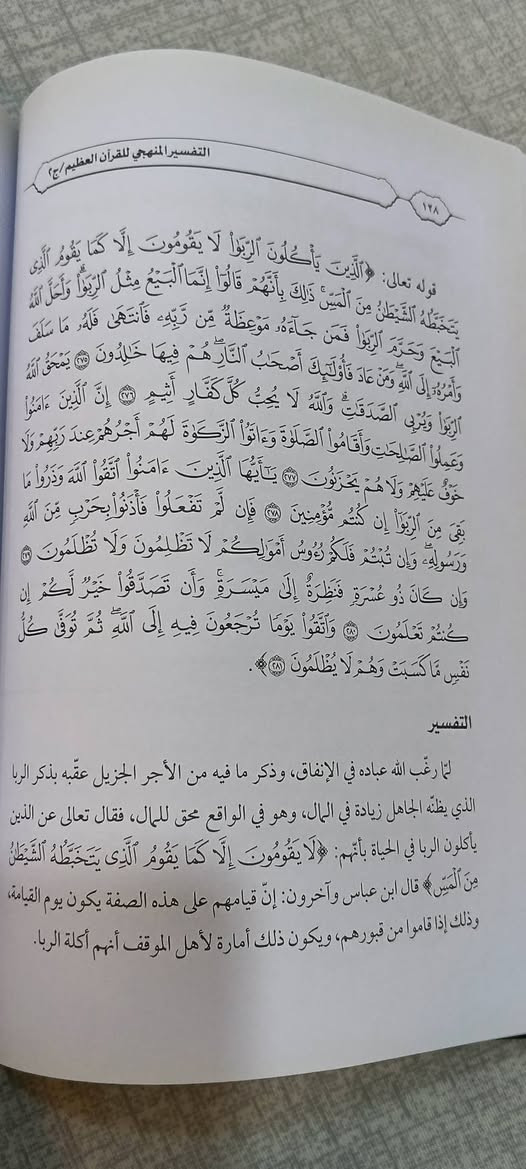 التفسير المنهجي للقرآن العظيم/ج٢
١٢٨
قوله تعالى: ﴿ٱلَّذِينَ يَأۡكُلُونَ ٱلرِّبَوٰاْ لَا يَقُومُونَ إِلَّا كَمَا يَقُومُ ٱلَّذِي
يَتَخَبَّطُهُ ٱلشَّيۡطَٰنُ مِنَ ٱلۡمَسِّۚ ذَٰلِكَ بِأَنَّهُمۡ قَالُوٓاْ إِنَّمَا ٱلۡبَيۡعُ مِثۡلُ ٱلرِّبَوٰاْۗ وَأَحَلَّ ٱللَّهُ
ٱلۡبَيۡعَ وَحَرَّمَ ٱلرِّبَوٰاْۚ فَمَن جَآءَهُۥ مَوۡعِظَةٞ مِّن رَّبِّهِۦ فَٱنتَهَىٰ فَلَهُۥ مَا سَلَفَ
وَأَمۡرُهُۥٓ إِلَى ٱللَّهِۖ وَمَنۡ عَادَ فَأُوْلَٰٓئِكَ أَصۡحَٰبُ ٱلنَّارِۖ هُمۡ فِيهَا خَٰلِدُونَ ٢٧٥ يَمۡحَقُ ٱللَّهُ
ٱلرِّبَوٰاْ وَيُرۡبِي ٱلصَّدَقَٰتِۗ وَٱللَّهُ لَا يُحِبُّ كُلَّ كَفَّارٍ أَثِيمٍ ٢٧٦ إِنَّ ٱلَّذِينَ ءَامَنُواْ
وَعَمِلُواْ ٱلصَّٰلِحَٰتِ وَأَقَامُواْ ٱلصَّلَوٰةَ وَءَاتَوُاْ ٱلزَّكَوٰةَ لَهُمۡ أَجۡرُهُمۡ عِندَ رَبِّهِمۡ وَلَا
خَوۡفٌ عَلَيۡهِمۡ وَلَا هُمۡ يَحۡزَنُونَ ٢٧٧ يَٰٓأَيُّهَا ٱلَّذِينَ ءَامَنُواْ ٱتَّقُواْ ٱللَّهَ وَذَرُواْ مَا
بَقِيَ مِنَ ٱلرِّبَوٰٓاْ إِن كُنتُم مُّؤۡمِنِينَ ٢٧٨ فَإِن لَّمۡ تَفۡعَلُواْ فَأۡذَنُواْ بِحَرۡبٖ مِّنَ ٱللَّهِ
وَرَسُولِهِۦۖ وَإِن تُبۡتُمۡ فَلَكُمۡ رُءُوسُ أَمۡوَٰلِكُمۡ لَا تَظۡلِمُونَ وَلَا تُظۡلَمُونَ ٢٧٩
وَإِن كَانَ ذُو عُسۡرَةٖ فَنَظِرَةٌ إِلَىٰ مَيۡسَرَةٖۚ وَأَن تَصَدَّقُواْ خَيۡرٞ لَّكُمۡ إِن
كُنتُمۡ تَعۡلَمُونَ ٢٨٠ وَٱتَّقُواْ يَوۡمٗا تُرۡجَعُونَ فِيهِ إِلَى ٱللَّهِۖ ثُمَّ تُوَفَّىٰ كُلُّ
نَفۡسٖ مَّا كَسَبَتۡ وَهُمۡ لَا يُظۡلَمُونَ ٢٨١﴾.
التفسير
لمّا رغّب الله عباده في الإنفاق، وذكر ما فيه من الأجر الجزيل عقّبه بذكر الربا
الذي يظنّه الجاهل زيادة في المال، وهو في الواقع محق للمال، فقال تعالى عن الذين
يأكلون الربا في الحياة بأنّهم: ﴿لَا يَقُومُونَ إِلَّا كَمَا يَقُومُ ٱلَّذِي يَتَخَبَّطُهُ ٱلشَّيۡطَٰنُ
مِنَ ٱلۡمَسِّ﴾ قال ابن عباس وآخرون: إنّ قيامهم على هذه الصفة يكون يوم القيامة،
وذلك إذا قاموا من قبورهم، ويكون ذلك أمارة لأهل الموقف أنهم أكلة الربا.